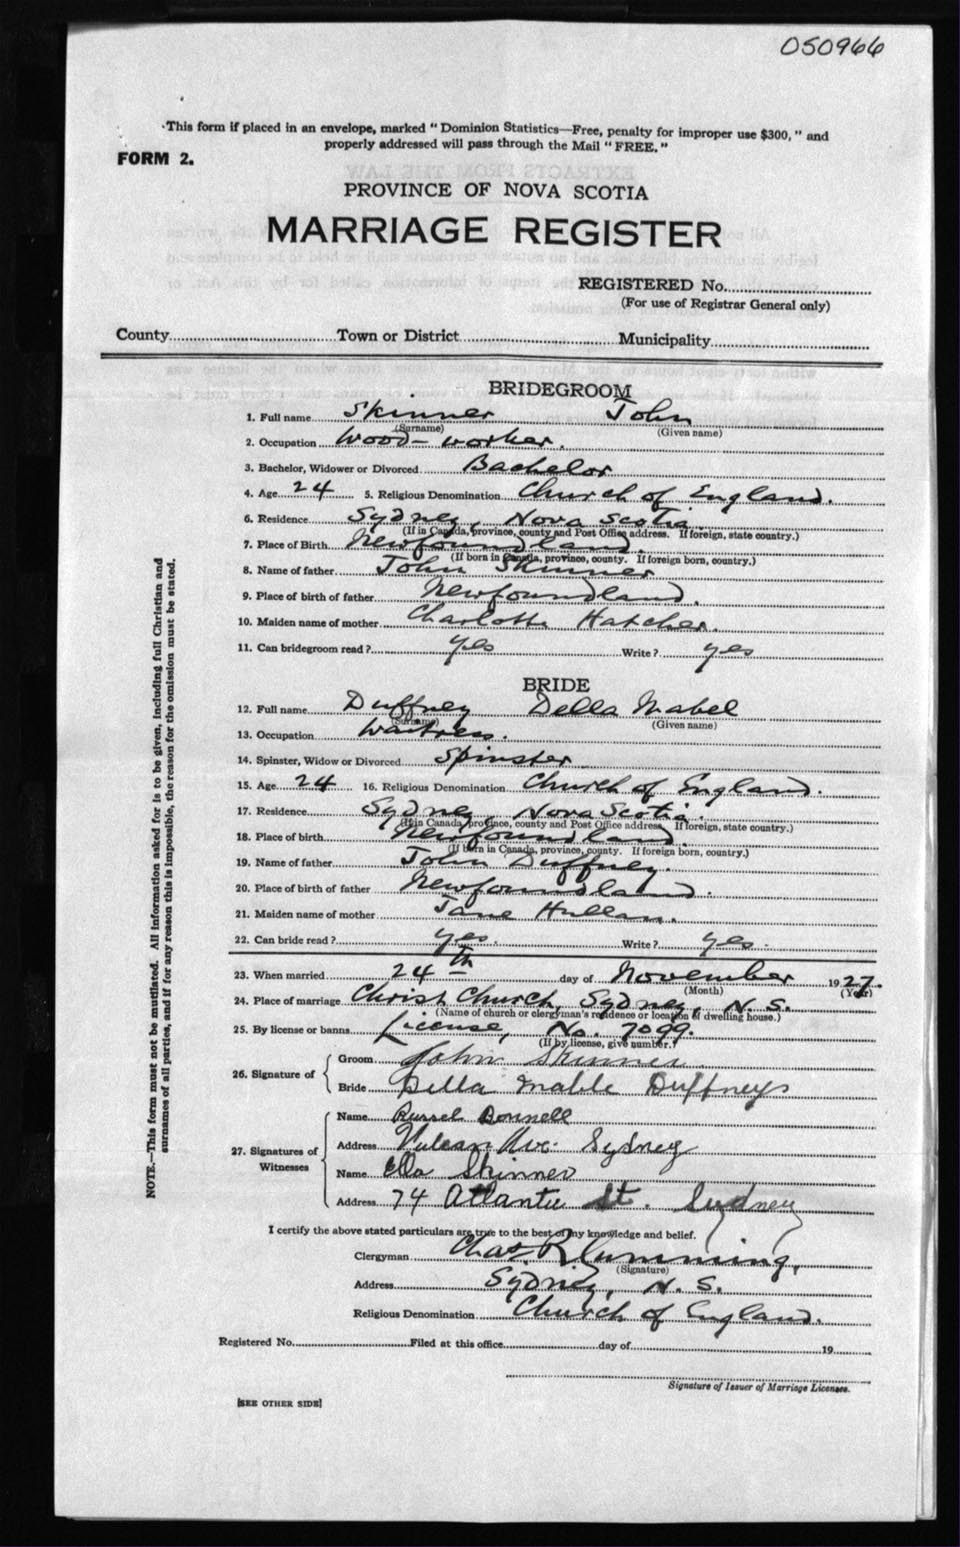 050966
This form if placed in an envelope, marked "Dominion Statistics—Free, penalty for improper use $300," and
properly addressed will pass through the Mail "FREE."
FORM 2.
PROVINCE OF NOVA SCOTIA
MARRIAGE REGISTER
REGISTERED No.
(For use of Registrar General only)
County Town or District Municipality
BRIDEGROOM
1. Full name Skinner John
(Surname) (Given name)
2. Occupation Wood-worker.
3. Bachelor, Widower or Divorced Bachelor
4. Age 24 5. Religious Denomination Church of England.
6. Residence Sydney, Nova Scotia
(If in Canada, province, county and Post Office address. If foreign, state country.)
7. Place of Birth Newfoundland.
(If born in Canada, province, county. If foreign born, country.)
8. Name of father John Skinner
9. Place of birth of father Newfoundland.
10. Maiden name of mother Charlotte Hatcher.
11. Can bridegroom read? yes Write? yes
BRIDE
12. Full name Duffney Della Mabel
(Surname) (Given name)
13. Occupation Waitress.
14. Spinster, Widow or Divorced Spinster
15. Age 24 16. Religious Denomination Church of England.
17. Residence Sydney, Nova Scotia.
(If in Canada, province, county and Post Office address. If foreign, state country.)
18. Place of birth Newfoundland.
(If born in Canada, province, county. If foreign born, country.)
19. Name of father John Duffney.
20. Place of birth of father Newfoundland.
21. Maiden name of mother Jane
22. Can bride read? yes. Write? yes.
23. When married 24th day of November 1927.
(Month) (Year)
24. Place of marriage Christ Church, Sydney, N.S.
(Name of church or clergyman's residence or location of dwelling house.)
25. By license or banns License, No. 7099.
(If by license, give number.)
26. Signature of
Groom John Skinner
Bride Della Mable Duffneys
27. Signatures of Witnesses
Name Russel Bonnell
Address Vulcan Ave. Sydney
Name Ella Skinner
Address 74 Atlantic St. Sydney
I certify the above stated particulars are true to the best of my knowledge and belief.
Clergyman Chas. R. Cumming,
(Signature)
Address Sydney, N.S.
Religious Denomination Church of England.
Registered No. Filed at this office day of 19
Signature of Issuer of Marriage Licenses.
[SEE OTHER SIDE]
NOTE.—This form must not be mutilated. All information asked for is to be given, including full Christian and
surnames of all parties, and if for any reason this is impossible, the reason for the omission must be stated.